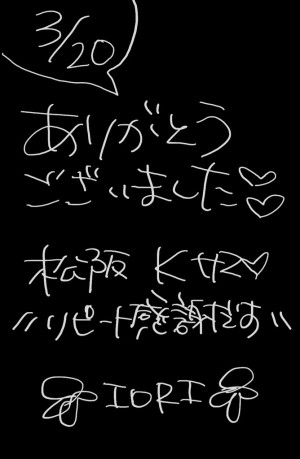 3/20
ありがとう
ございました♡♡
松阪 K サマ♡
リピート感謝です
IORI